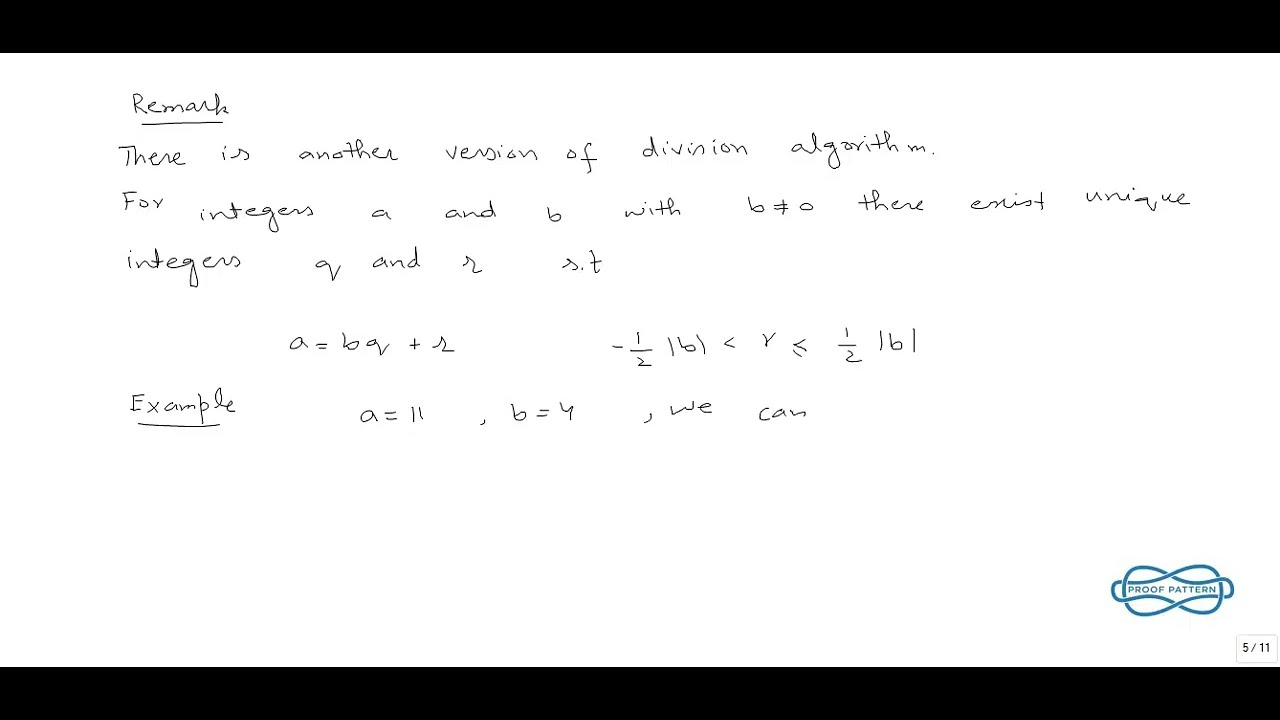 Remark
There is another version of division algorithm.
For integers a and b with b ≠ 0 there exist unique
integers q and r s.t
a = bq + r -1/2 |b| < r ≤ 1/2 |b|
Example a = 11 , b = 4 , we can
PROOF PATTERN
5 / 11